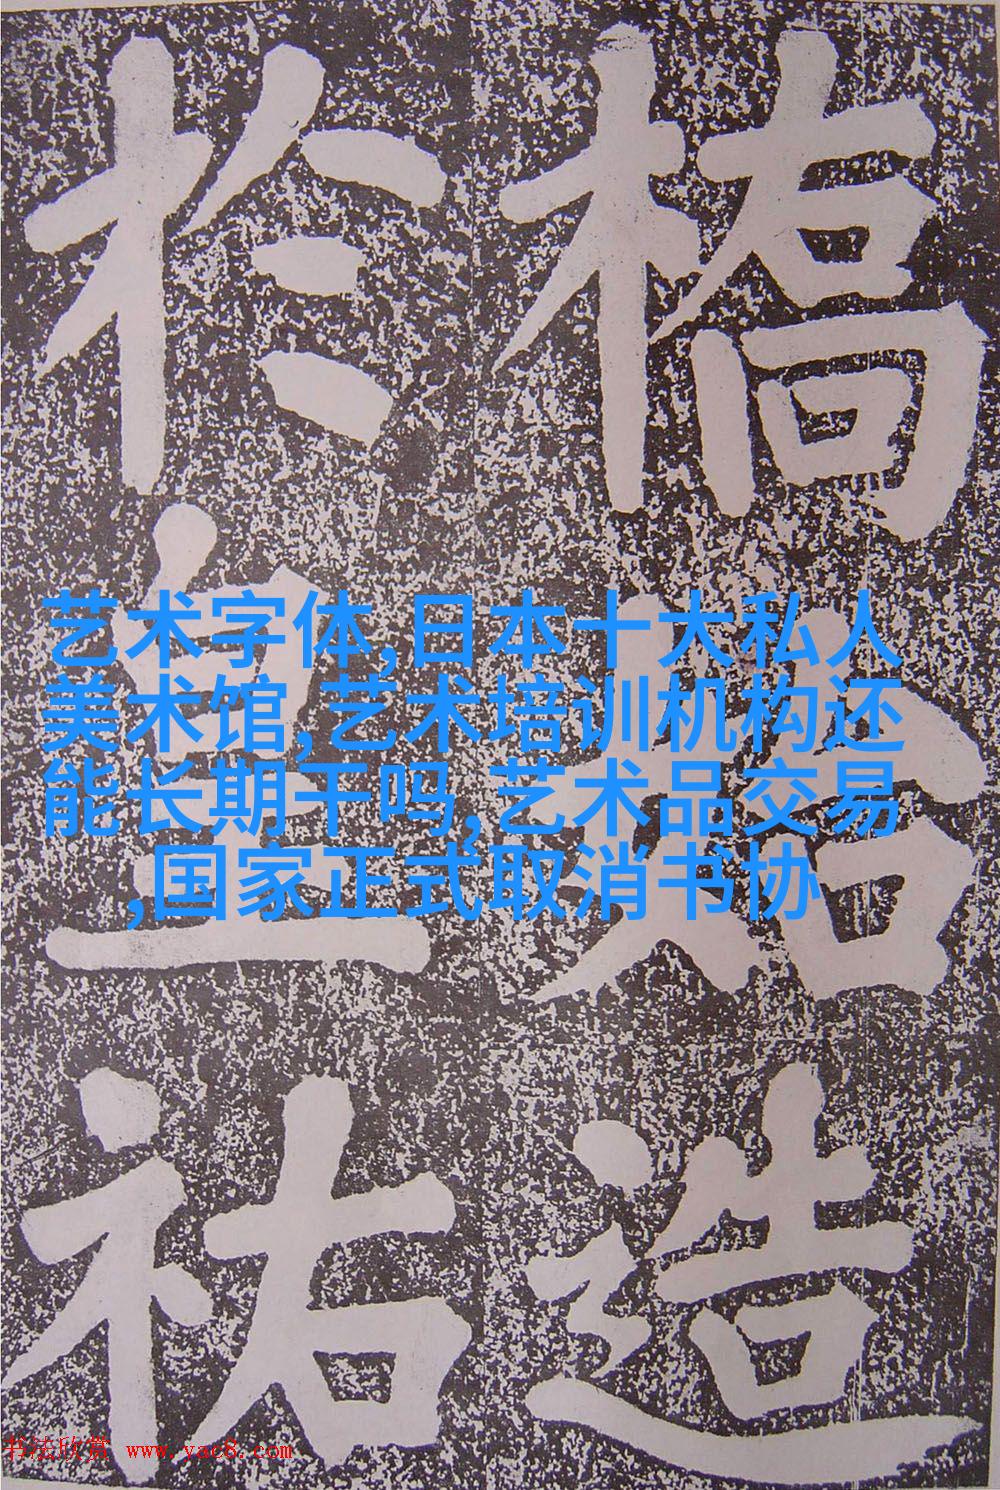 橋始造
於皇祐
艺术字体,日本十大私人
美术馆,艺术培训机构还
能长期干吗,艺术品交易
,国家正式取消书协
书法欣赏 www.yac8.com